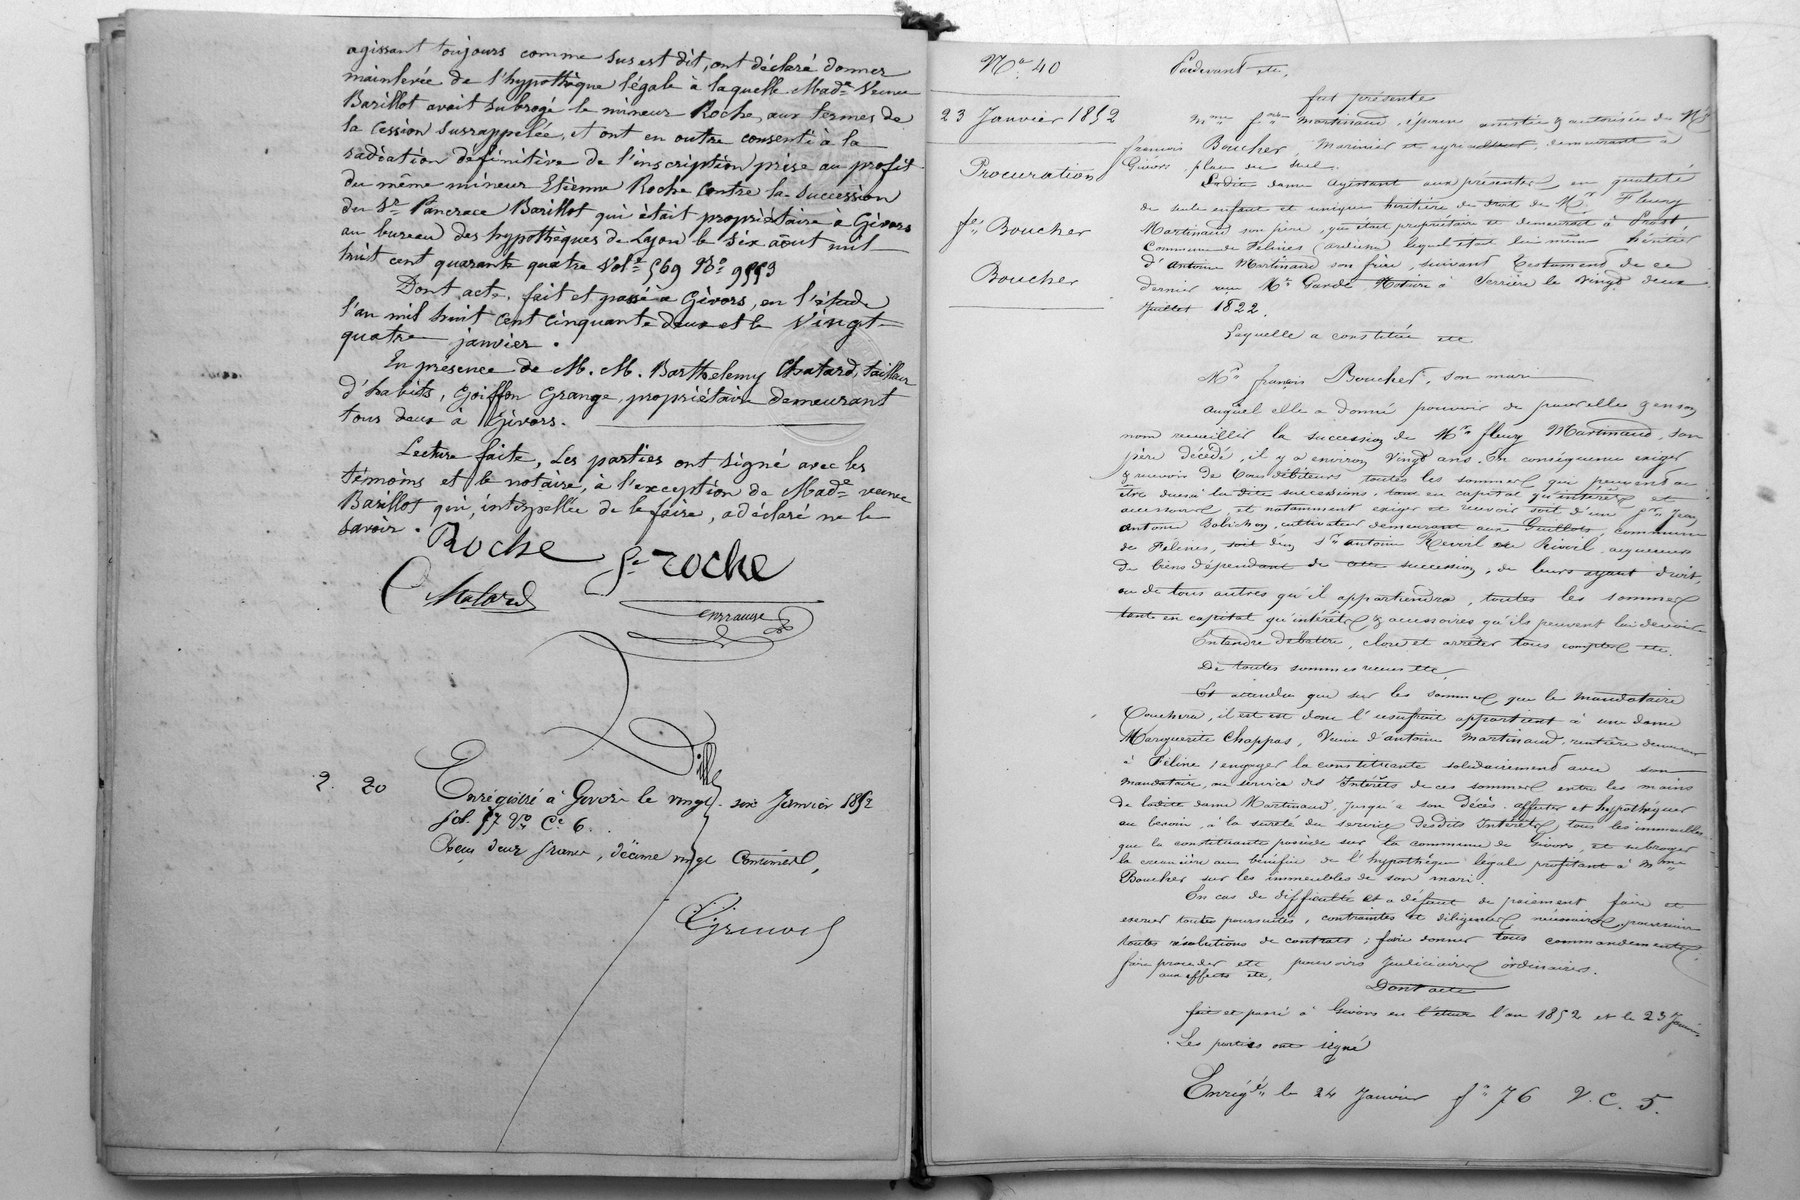 agissant toujours comme sus est dit, ont déclaré donner
mainlevée de l'hypothèque légale à laquelle Made Veuve
Barillot avait subrogé le mineur Roche, aux termes de
la cession susrappelée, et ont en outre consenti à la
radiation définitive de l'inscription prise au profit
du même mineur Etienne Roche contre la succession
du Sr Pancrace Barillot qui était propriétaire à Givors
au bureau des hypothèques de Lyon le six août mil
huit cent quarante quatre Vol. 569 No 9553
Dont acte, fait et passé à Givors, en l'étude
l'an mil huit cent cinquante deux et le vingt-
quatre janvier.
En présence de M. M. Barthelemy Chatard, tailleur
d'habits, Goiffon Grange, propriétaire demeurant
tous deux à Givors.
Lecture faite, Les parties ont signé avec les
témoins et le notaire, à l'exception de Made veuve
Barillot qui, interpellée de le faire, a déclaré ne le
savoir.
Roche
roche
Enregistré à Givors le vingt six Janvier 1852
fol. 77 Vo Ce 6.
Reçu deux francs, décime vingt Centimes,
2. 20
No. 40
23 Janvier 1852
Procuration
fe Boucher
à
Boucher
Pardevant etc.
fut présente
Mme fse Martinaud, épouse assistée & autorisée de Mr
francois Boucher, Marinier et demeurant à
Givors place du sud.
Ladite dame agissant aux présentes en qualité
de seule enfant et unique héritière de droit de Mr. Fleury
Martinaud son père, qui était propriétaire et demeurait à
Commune de Felines (ardèche) lequel était lui même héritier
d'antoine Martinaud son frère, suivant testament de ce
dernier reçu Me Garde Notaire à Serrière le vingt deux
Juillet 1822.
Laquelle a constitué etc
Mr francois Boucher, son mari
auquel elle a donné pouvoir de pour elle & en son
nom recueillir la succession de Mr fleury Martinaud, son
père décédé, il y a environ vingt ans. En conséquence exiger
& recevoir de tous débiteurs toutes les sommes qui peuvent
être dues à la dite succession, tant en capital qu'intérêts et
accessoires, et notamment exiger et recevoir soit d'un Sr Jean
antoine Babichon, cultivateur demeurant aux Guillots, commune
de Félines, soit du Sr antoine Revoil ou Rivoil, acquéreurs
de biens dépendant de cette succession, de leurs ayant droit,
ou de tous autres qu'il appartiendra, toutes les sommes
tant en capital qu'intérêts & accessoires qu'ils peuvent lui devoir
Entendre débattre, clore et arrêter tous comptes etc.
De toutes sommes reçues etc,
Et attendu que sur les sommes que le mandataire
touchera, il est dont l'usufruit appartient à une dame
Marguerite Chappas, Veuve d'antoine Martinaud, rentière demeurant
à Féline, engager la constituante solidairement avec son
mandataire, au service des Intérêts de ces sommes entre les mains
de ladite dame Martinaud, jusqu'à son décès, affecter et hypothéquer
au besoin, à la sureté du service desdits Intérêts, tous les immeubles
que la constituante possède sur la commune de Givors, et subroger
la créancière au bénéfice de l'hypothèque légale profitant à Mme
Boucher sur les immeubles de son mari.
En cas de difficulté et à défaut de paiement faire et
exercer toutes poursuites, contraintes et diligences nécessaires, poursuivre
toutes résolutions de contrats; faire donner tous commandements,
faire procéder etc pouvoirs judiciaires ordinaires.
aux effets etc,
Dont acte
fait et passé à Givors en l'étude l'an 1852 et le 23 Janvier
Les parties ont signé
Enregé le 24 Janvier fo 76 V. C. 5.